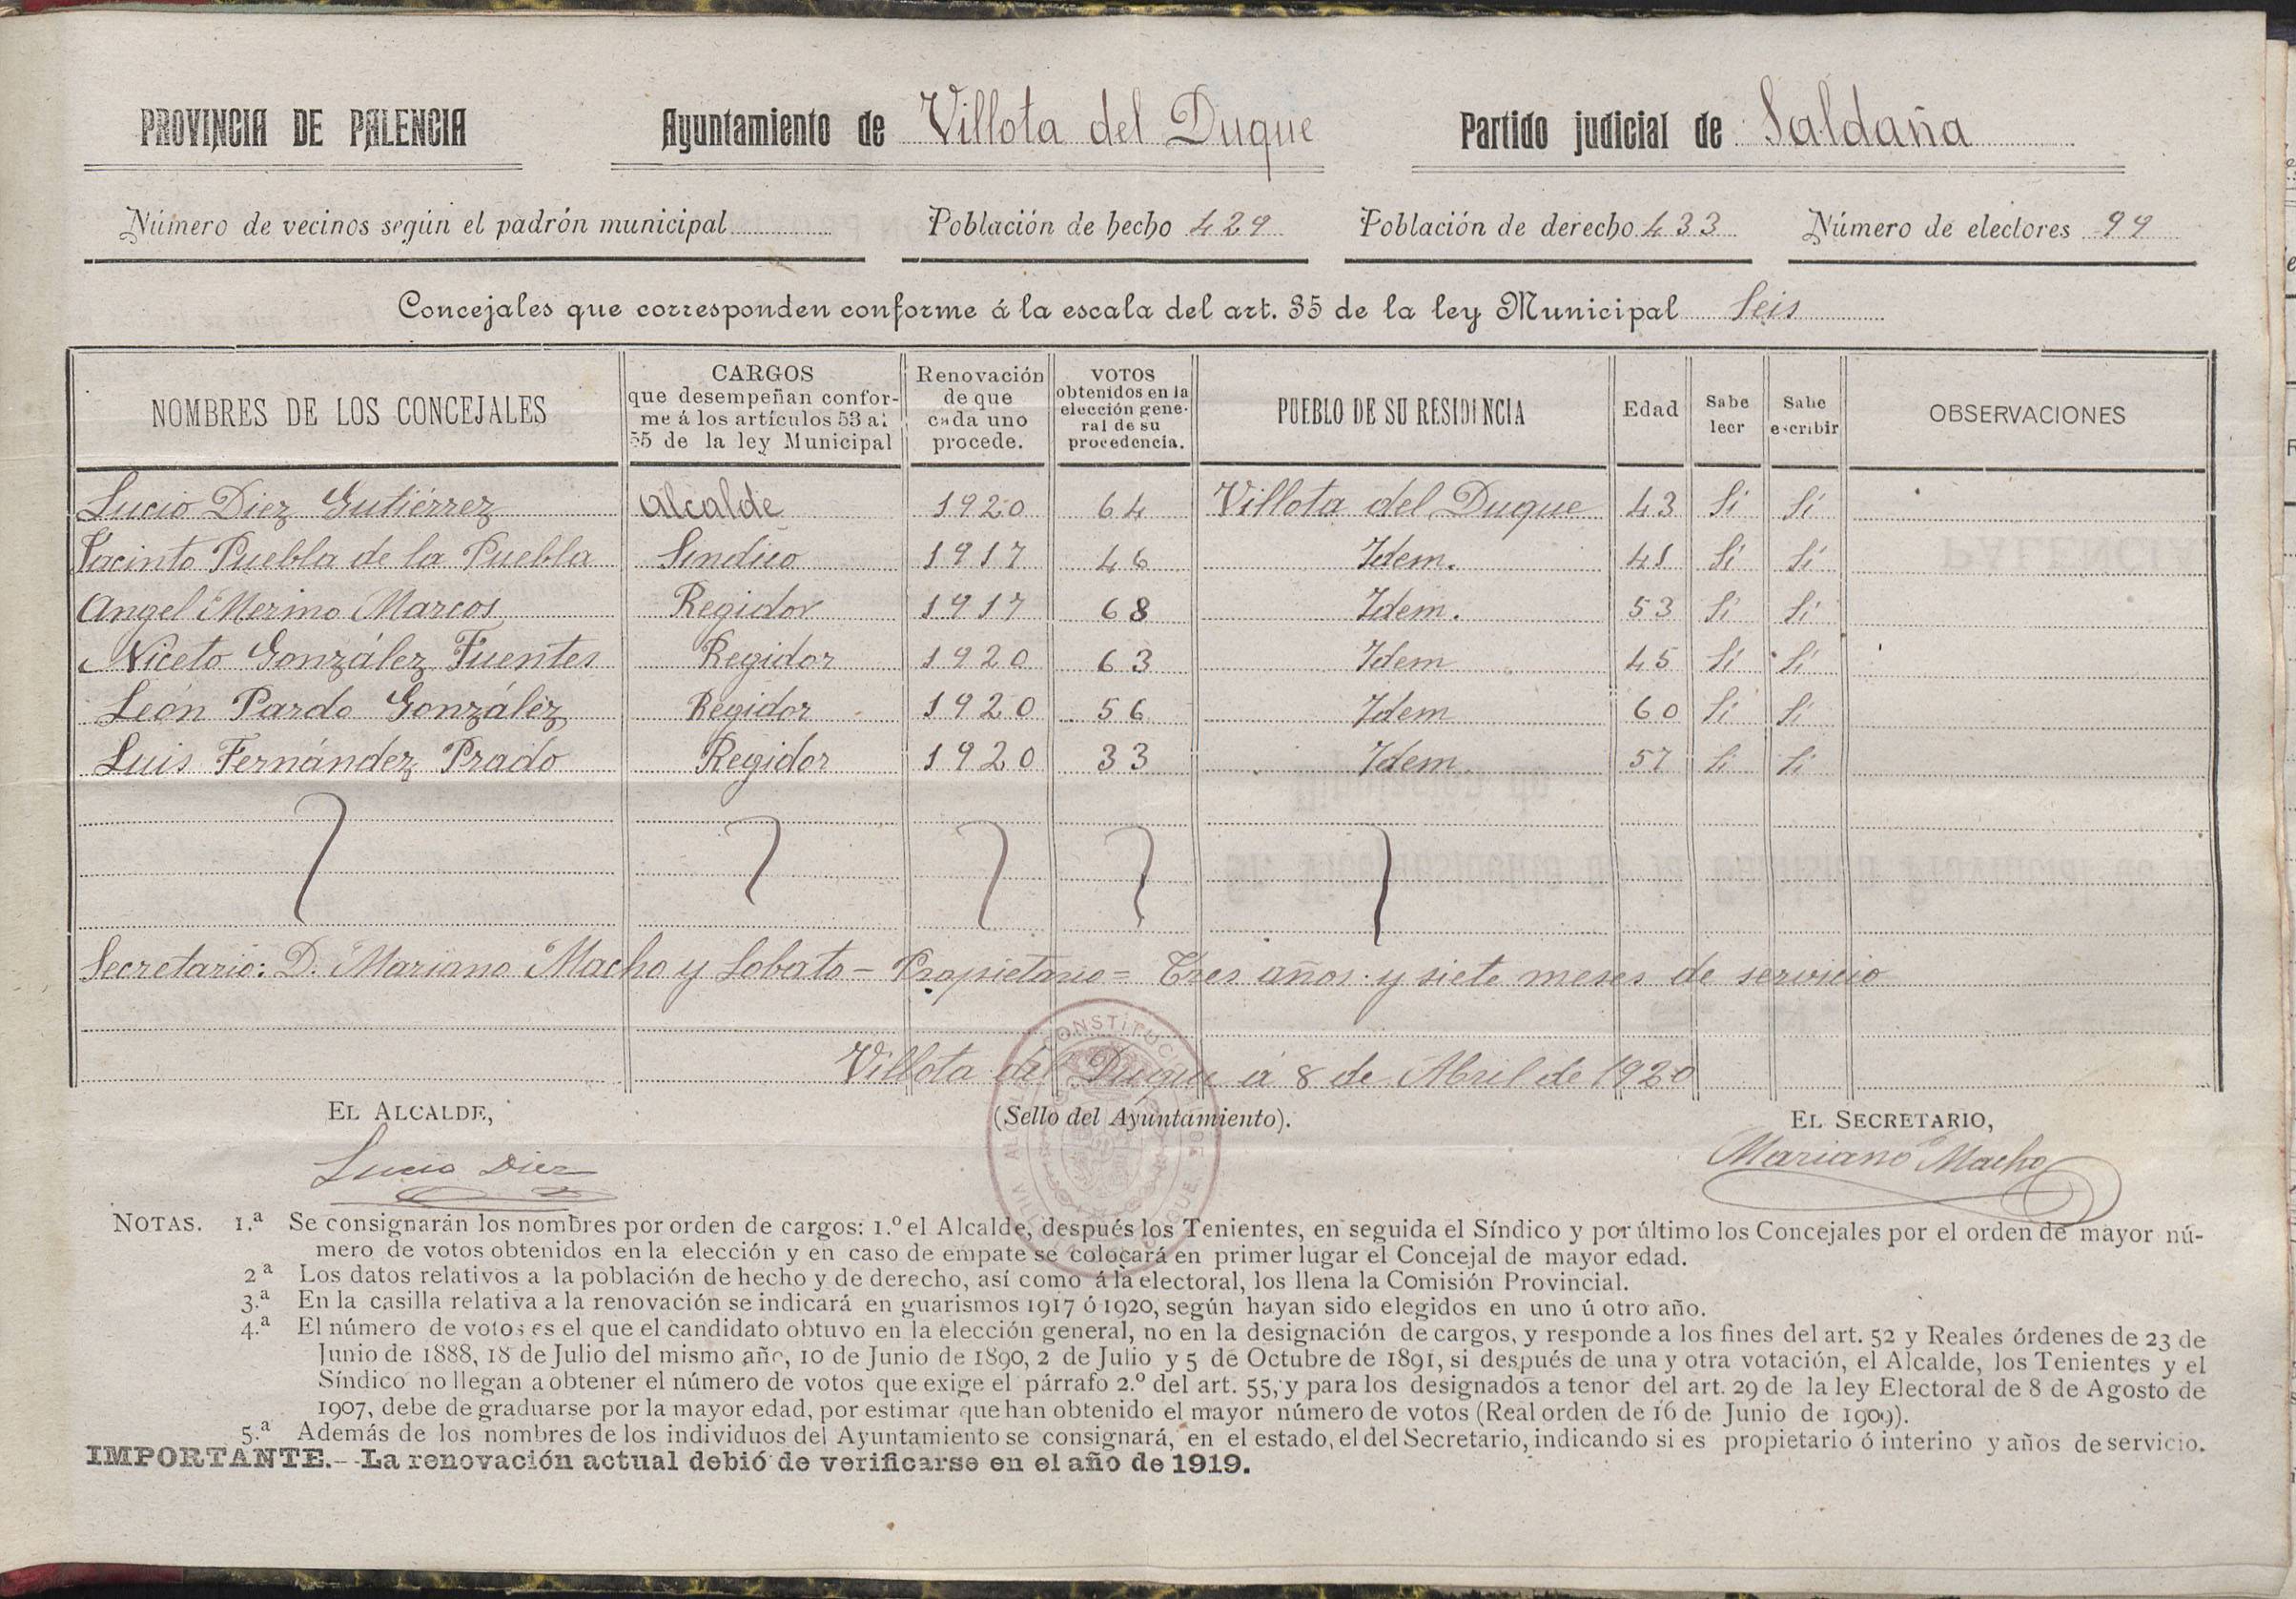 PROVINCIA DE PALENCIA Ayuntamiento de Villota del Duque Partido judicial de Saldaña
Número de vecinos según el padrón municipal Población de hecho 429 Población de derecho 433 Número de electores 99
Concejales que corresponden conforme á la escala del art. 35 de la ley Municipal Seis
NOMBRES DE LOS CONCEJALES
CARGOS
que desempeñan confor-
me á los artículos 53 al
55 de la ley Municipal
Renovación
de que
cada uno
procede.
VOTOS
obtenidos en la
elección gene-
ral de su
procedencia.
PUEBLO DE SU RESIDENCIA
Edad
Sabe
leer
Sabe
escribir
OBSERVACIONES
Lucio Diez Gutiérrez Alcalde 1920 64 Villota del Duque 43 Si Si
Jacinto Puebla de la Puebla Sindico 1917 46 Idem. 41 Si Si
Angel Merino Marcos Regidor 1917 68 Idem. 53 Si Si
Niceto González Fuentes Regidor 1920 63 Idem 45 Si Si
León Pardo González Regidor 1920 56 Idem 60 Si Si
Luis Fernández Prado Regidor 1920 33 Idem. 57 Si Si
Secretario: D. Mariano Macho y Lobato - Propietario = Tres años y siete meses de servicio
Villota del Duque á 8 de Abril de 1920
EL ALCALDE, (Sello del Ayuntamiento). EL SECRETARIO,
Lucio Diez Mariano Macho
NOTAS. 1.ª Se consignarán los nombres por orden de cargos: 1.º el Alcalde, después los Tenientes, en seguida el Síndico y por último los Concejales por el orden de mayor nú-
mero de votos obtenidos en la elección y en caso de empate se colocará en primer lugar el Concejal de mayor edad.
2ª Los datos relativos a la población de hecho y de derecho, así como á la electoral, los llena la Comisión Provincial.
3.ª En la casilla relativa a la renovación se indicará en guarismos 1917 ó 1920, según hayan sido elegidos en uno ú otro año.
4.ª El número de votos es el que el candidato obtuvo en la elección general, no en la designación de cargos, y responde a los fines del art. 52 y Reales órdenes de 23 de
Junio de 1888, 18 de Julio del mismo año, 10 de Junio de 1890, 2 de Julio y 5 de Octubre de 1891, si después de una y otra votación, el Alcalde, los Tenientes y el
Síndico no llegan a obtener el número de votos que exige el párrafo 2.º del art. 55, y para los designados a tenor del art. 29 de la ley Electoral de 8 de Agosto de
1907, debe de graduarse por la mayor edad, por estimar que han obtenido el mayor número de votos (Real orden de 16 de Junio de 1909).
5.ª Además de los nombres de los individuos del Ayuntamiento se consignará, en el estado, el del Secretario, indicando si es propietario ó interino y años de servicio.
IMPORTANTE.- -La renovación actual debió de verificarse en el año de 1919.